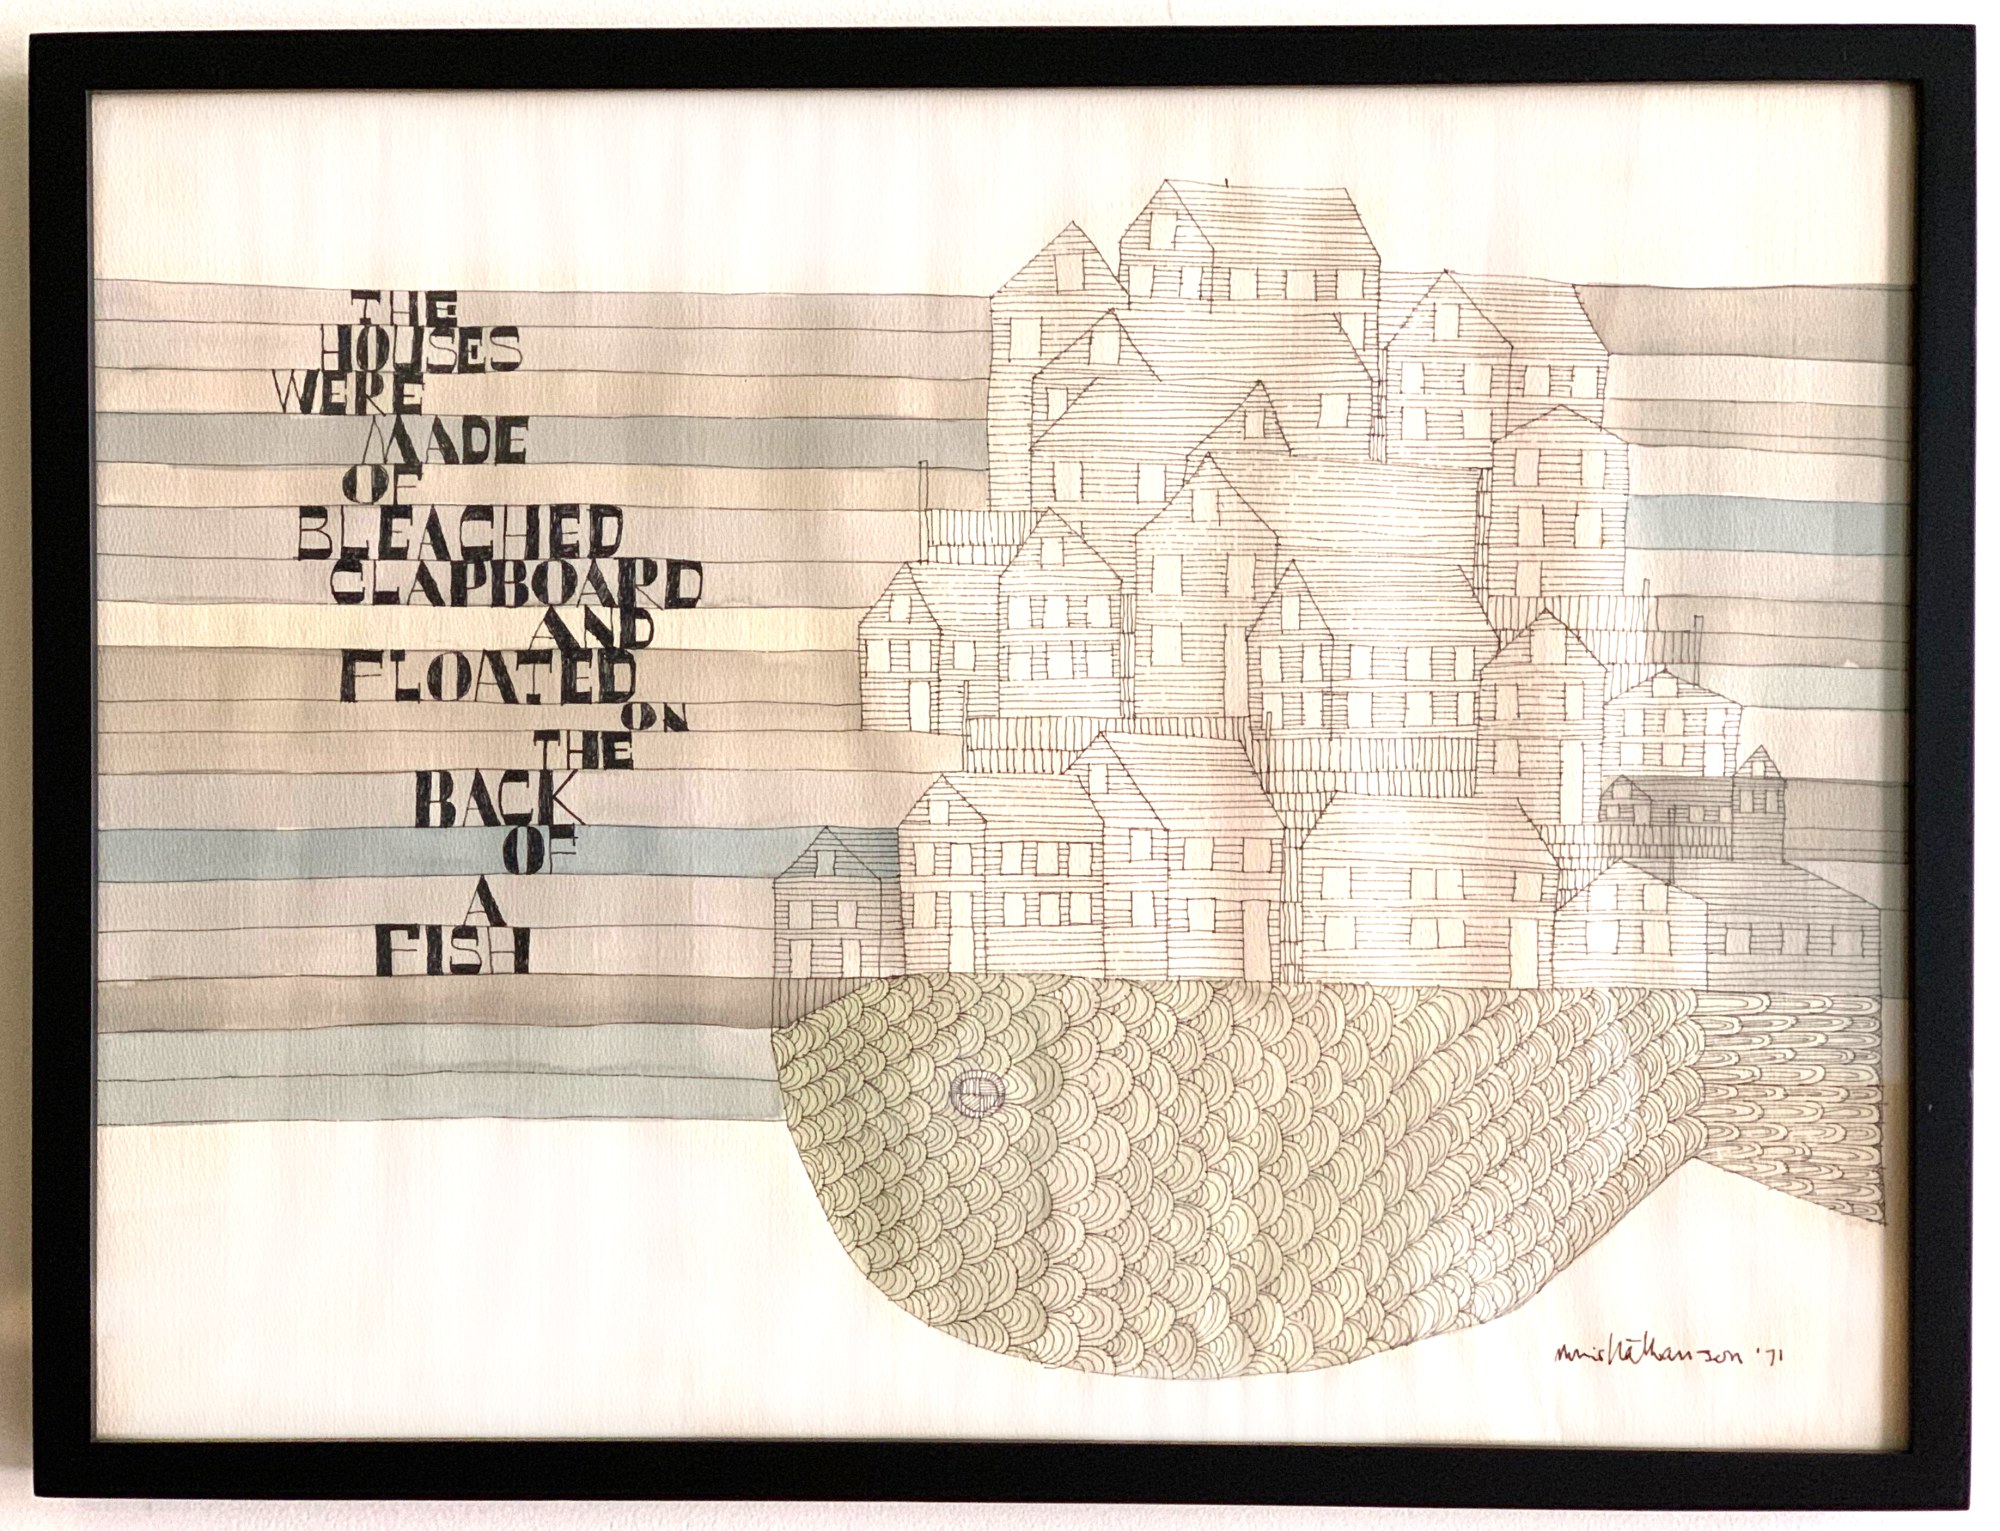 THE
HOUSES
WERE
MADE
OF
BLEACHED
CLAPBOARD
AND
FLOATED
ON
THE
BACK
OF
A
FISH
Nathanson '71